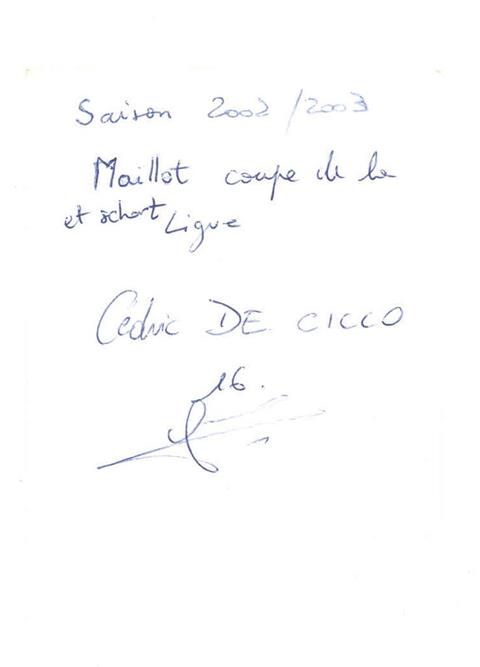 Saison 2002/2003
Maillot coupe de la
et short Ligue
Cédric DE CICCO
16.